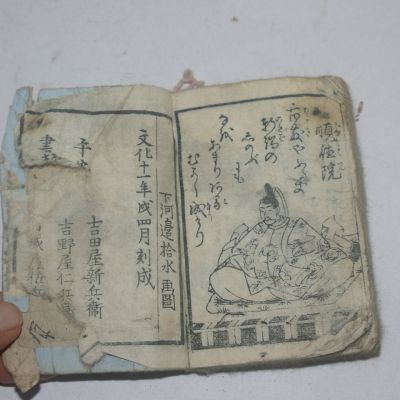 順徳院
百敷やふるき
軒端の
しのぶ
にも
なを
あまりある
むかし成けり
下河邊拾水画圖
文化十一年戌四月刻成
吉田屋新兵衛
吉野屋仁兵衛
書